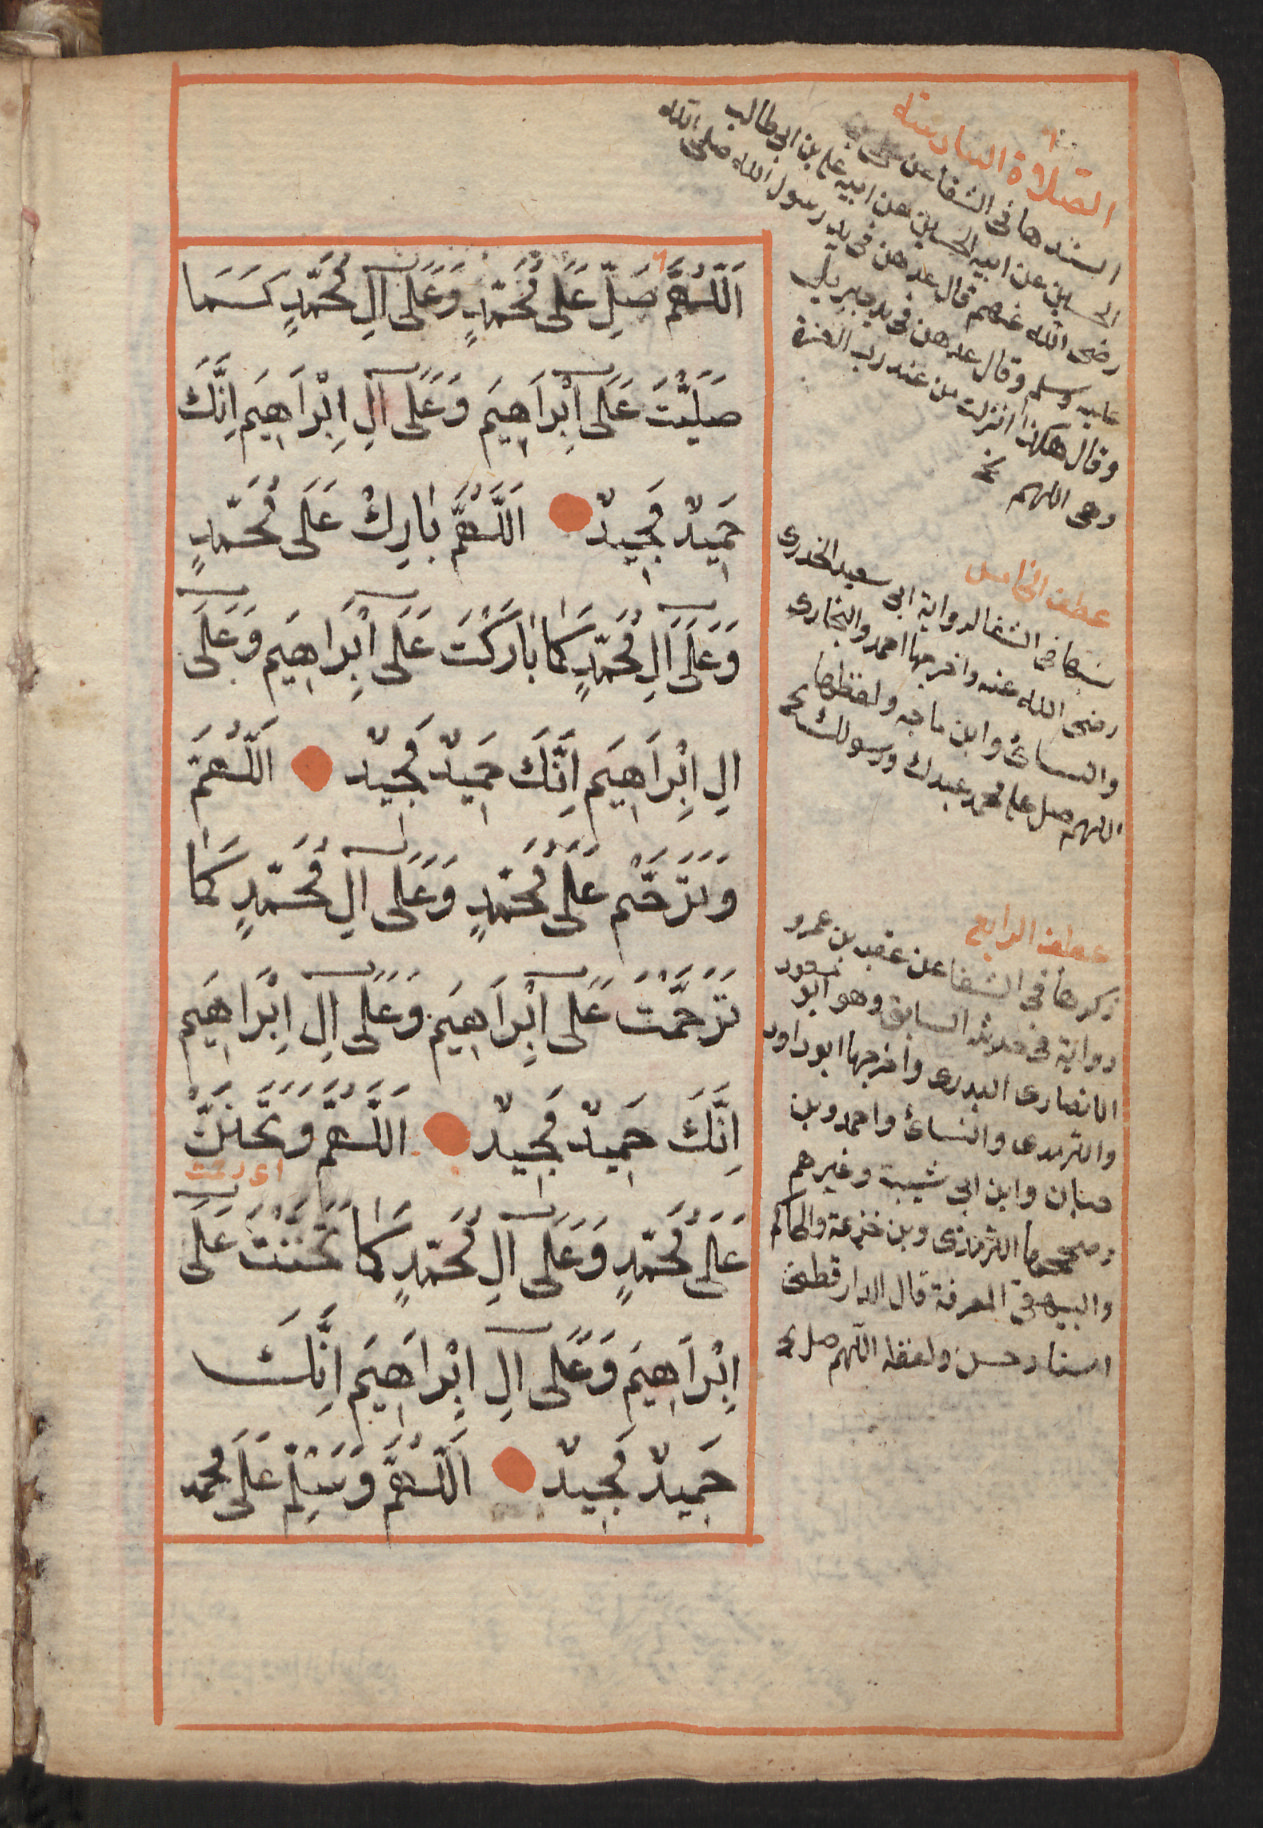 اَللّٰهُمَّ صَلِّ عَلَى مُحَمَّدٍ وَعَلَى آلِ مُحَمَّدٍ كَمَا
صَلَّيْتَ عَلَى اِبْرَاهِيمَ وَعَلَى آلِ اِبْرَاهِيمَ اِنَّكَ
حَمِيدٌ مَجِيدٌ اَللّٰهُمَّ بَارِكْ عَلَى مُحَمَّدٍ
وَعَلَى آلِ مُحَمَّدٍ كَمَا بَارَكْتَ عَلَى اِبْرَاهِيمَ وَعَلَى
الِ اِبْرَاهِيمَ اِنَّكَ حَمِيدٌ مَجِيدٌ اَللّٰهُمَّ
وَتَرَحَّمْ عَلَى مُحَمَّدٍ وَعَلَى آلِ مُحَمَّدٍ كَمَا
تَرَحَّمْتَ عَلَى اِبْرَاهِيمَ وَعَلَى الِ اِبْرَاهِيمَ
اِنَّكَ حَمِيدٌ مَجِيدٌ اَللّٰهُمَّ وَتَحَنَّنْ
عَلَى مُحَمَّدٍ وَعَلَى آلِ مُحَمَّدٍ كَمَا تَحَنَّنْتَ عَلَى
اِبْرَاهِيمَ وَعَلَى آلِ اِبْرَاهِيمَ اِنَّكَ
حَمِيدٌ مَجِيدٌ اَللّٰهُمَّ وَسَلِّمْ عَلَى مُحَمَّد
الصلاة السادسة
اسندها فى الشفا عن على بن
الحسين عن ابيه الحسين عن ابيه على بن ابى طالب
رضى الله عنهم قال عدهن فى يد رسول الله صلى الله
عليه وسلم وقال عدهن فى يد جبريل
وقال هكذا انزلت من عند رب العزة
وهى اللهم الخ
عطف الخامس
فى الشفا لرواية ابى سعيد الخدرى
رضى الله عنه واخرجها احمد والبخارى
والنسائ وابن ماجه ولفظها
اللهم صل على محمد عبدك ورسولك الخ
عطف الرابع
ذكرها فى الشفا عن عقبه بن عمرو
رواية فى حديثه السابق وهو ابو مسعود
الانصارى البدرى واخرجها ابو داود
والترمدى والنسائ واحمد وبن
حبان وابن ابى شيبة وغيرهم
وصححها الترمذى وبن خزيمة والحاكم
والبيهقى المعرفة قال الدارقطنى
اسناد حسن ولفظه اللهم صل الخ